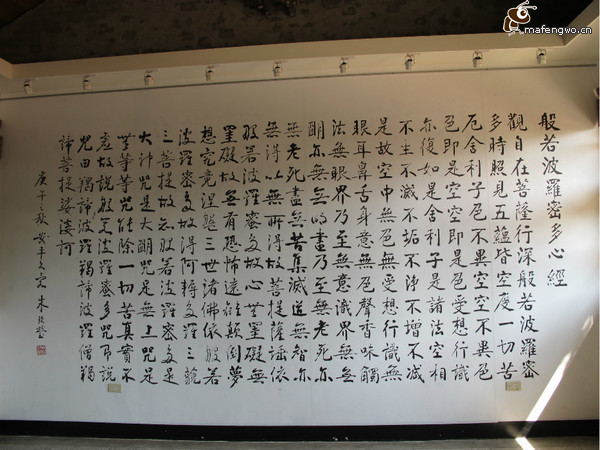 mafengwo.cn
般若波羅密多心經
觀自在菩薩行深般若波羅密
多時照見五蘊皆空度一切苦
厄舍利子色不異空空不異色
色即是空空即是色受想行識
亦復如是舍利子是諸法空相
不生不滅不垢不淨不增不減
是故空中無色無受想行識無
眼耳鼻舌身意無色聲香味觸
法無眼界乃至無意識界無無
明亦無無明盡乃至無老死亦
無老死盡無苦集滅道無智亦
無得以無所得故菩提薩埵依
般若波羅密多故心無罣礙無
罣礙故無有恐怖遠離顛倒夢
想究竟涅槃三世諸佛依般若
波羅密多故得阿耨多羅三藐
三菩提故知般若波羅密多是
大神咒是大明咒是無上咒是
無等等咒能除一切苦真實不
虛故說般若波羅密多咒即說
咒曰羯諦波羅羯諦波羅僧羯
諦菩提娑婆訶
庚午秋